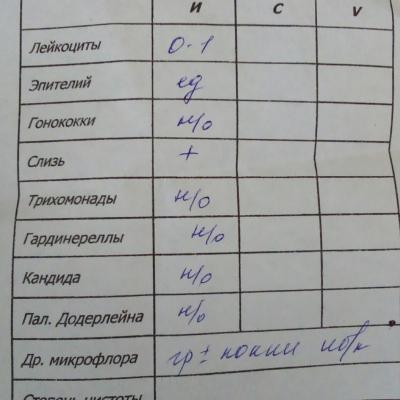 И C V
Лейкоциты 0-1
Эпителий ед
Гонококки н/о
Слизь +
Трихомонады н/о
Гардинереллы н/о
Кандида н/о
Пал. Додерлейна н/о
Др. микрофлора гр ± кокки
Степень чистоты